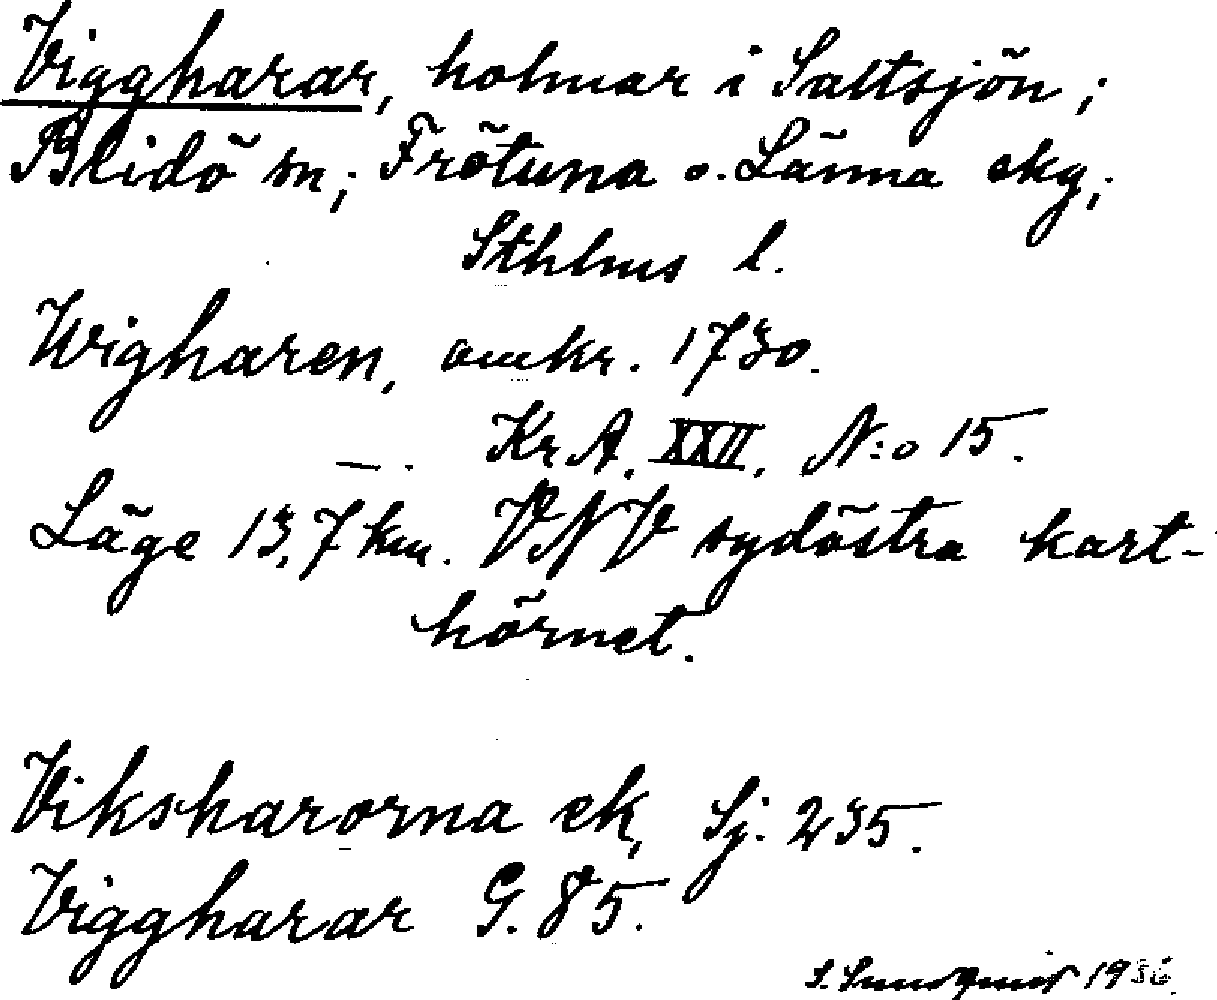 Viggharar, holmar i Saltsjön;
Blidö sn; Frötuna o. Länna skg;
Sthlms l.
Wigharen, omkr. 1730.
— . Kr A. XXII. N:o 15.
Läge 13,7 km. VNV sydöstra kart-
hörnet.
Viksharorna ek, Sj. 235.
Viggharar G. 85.
S. Sundqvist 1936.